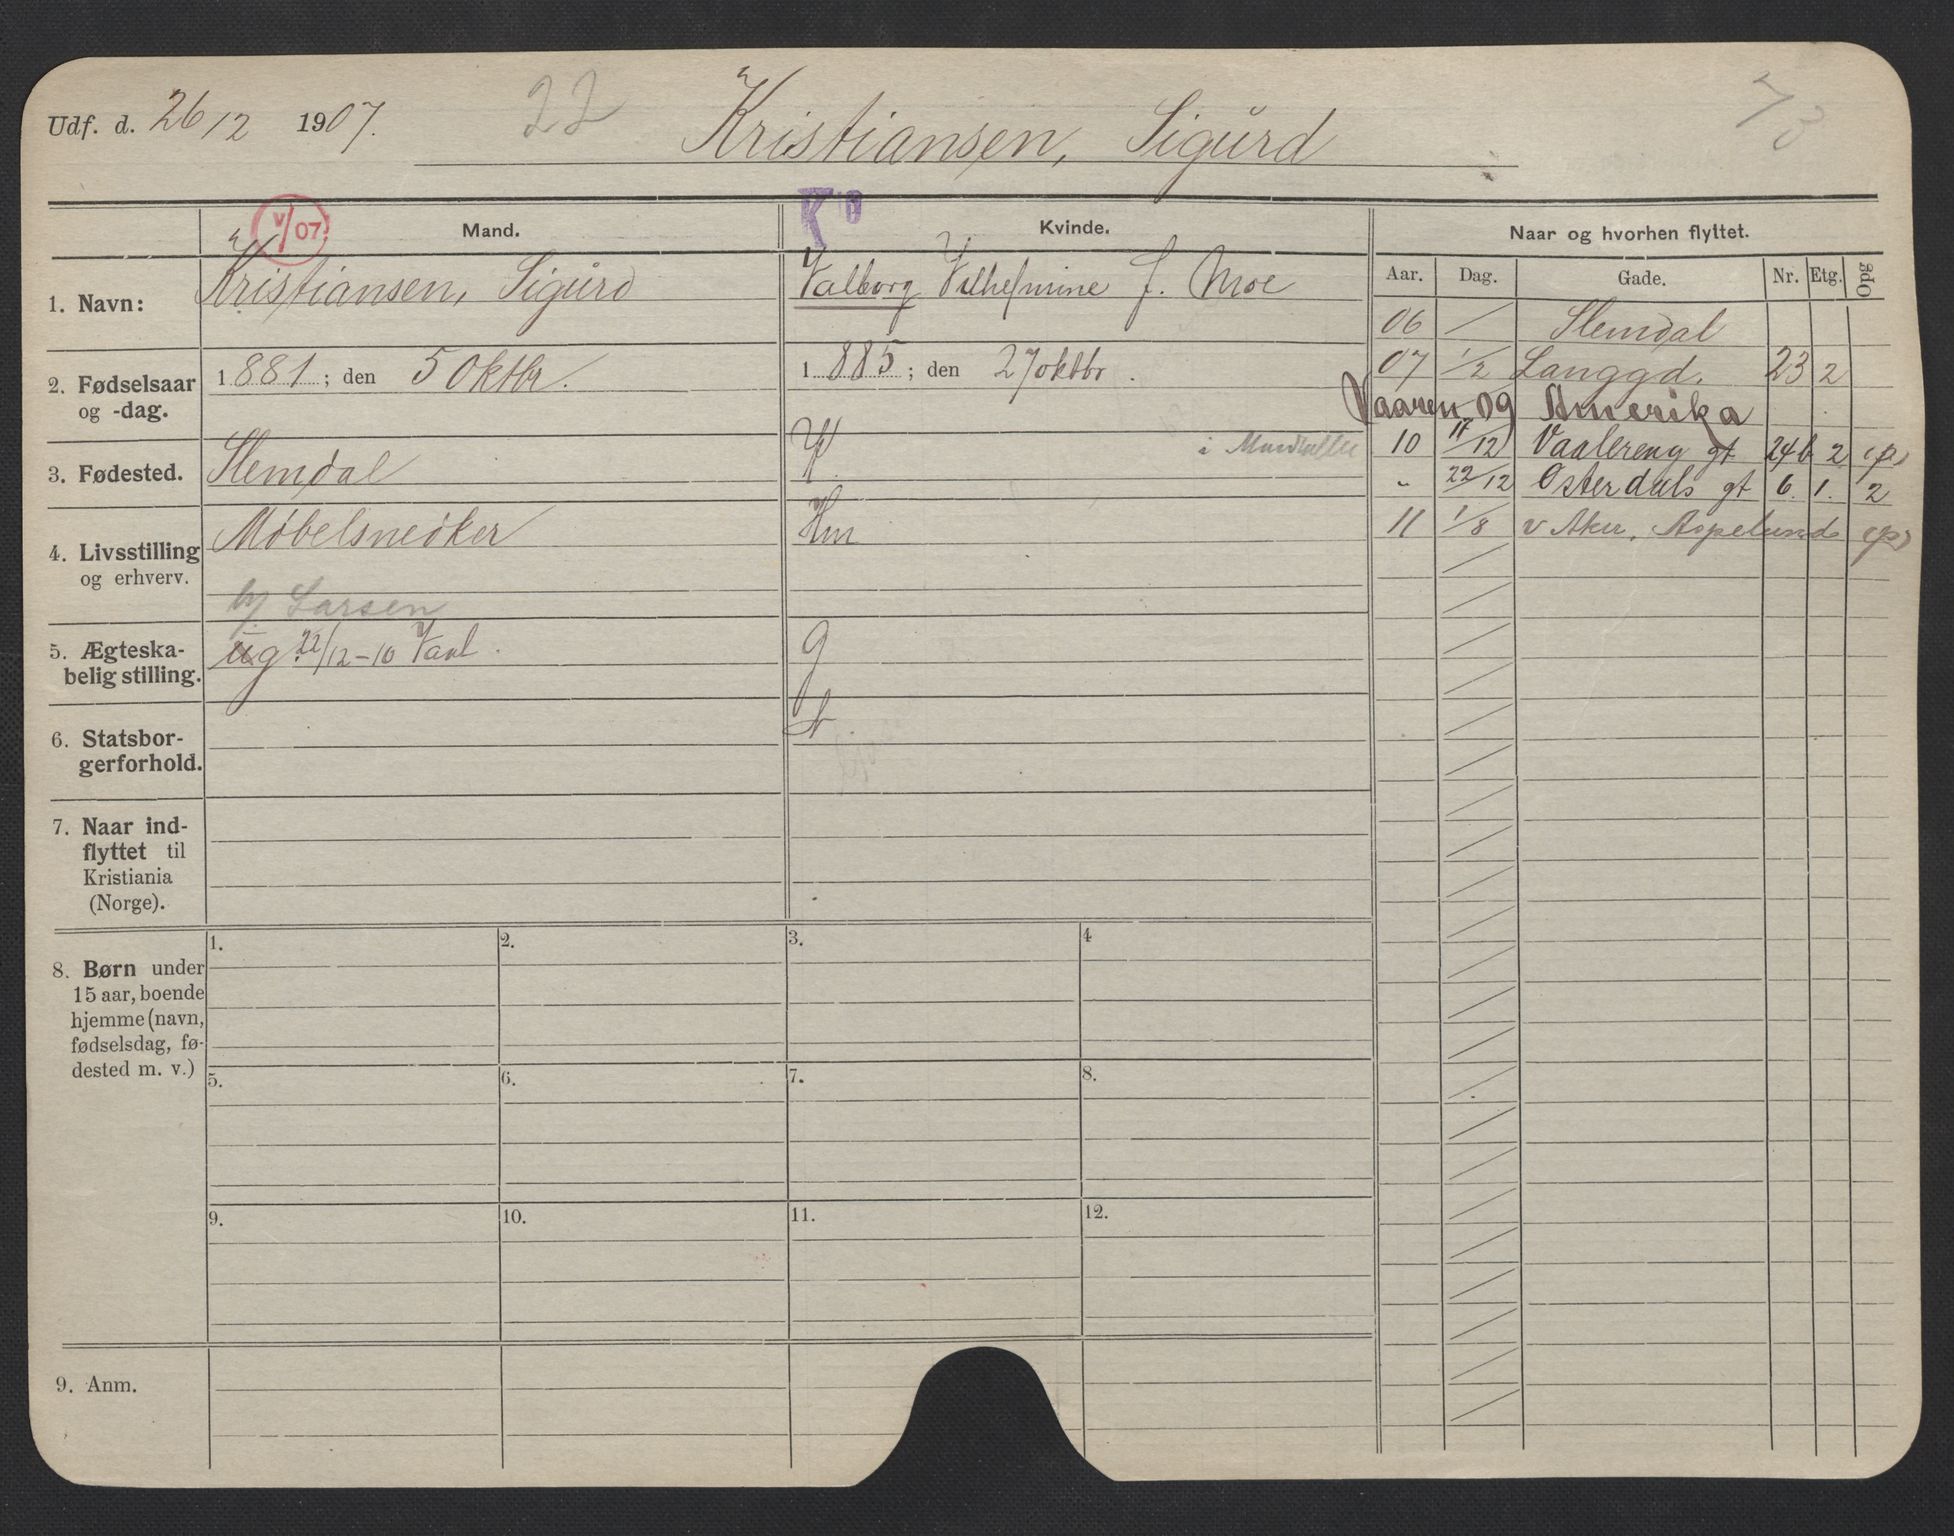 Udf. d. 26/12 1907. 22 Kristiansen, Sigurd
V/07 Mand. Kvinde. Naar og hvorhen flyttet.
Aar. Dag. Gade. Nr. Etg. Opg
1. Navn: Kristiansen, Sigurd Valborg Vilhelmine f. Moe
06 / Slemdal
2. Fødselsaar og -dag. 1881; den 5 Oktbr. 1885; den 27 oktbr.
07 1/2 Langgd. 23 2
Vaaren 09 Amerika
3. Fødested. Slemdal K.
10 17/12 Vaalereng gt 24b 2 (p)
" 22/12 Østerdals gt 6. 1. 2
4. Livsstilling og erhverv. Møbelsnedker Hm
11 1/8 v Aker, Aspelund (p)
hj. Larsen
5. Ægteska-
belig stilling. ug 22/12-10 Vaal. g
6. Statsbor-
gerforhold. N
7. Naar ind-
flyttet til
Kristiania
(Norge).
8. Børn under
15 aar, boende
hjemme (navn,
fødselsdag, fø-
dested m. v.)
1. 2. 3. 4
5. 6. 7. 8.
9. 10. 11. 12.
9. Anm.